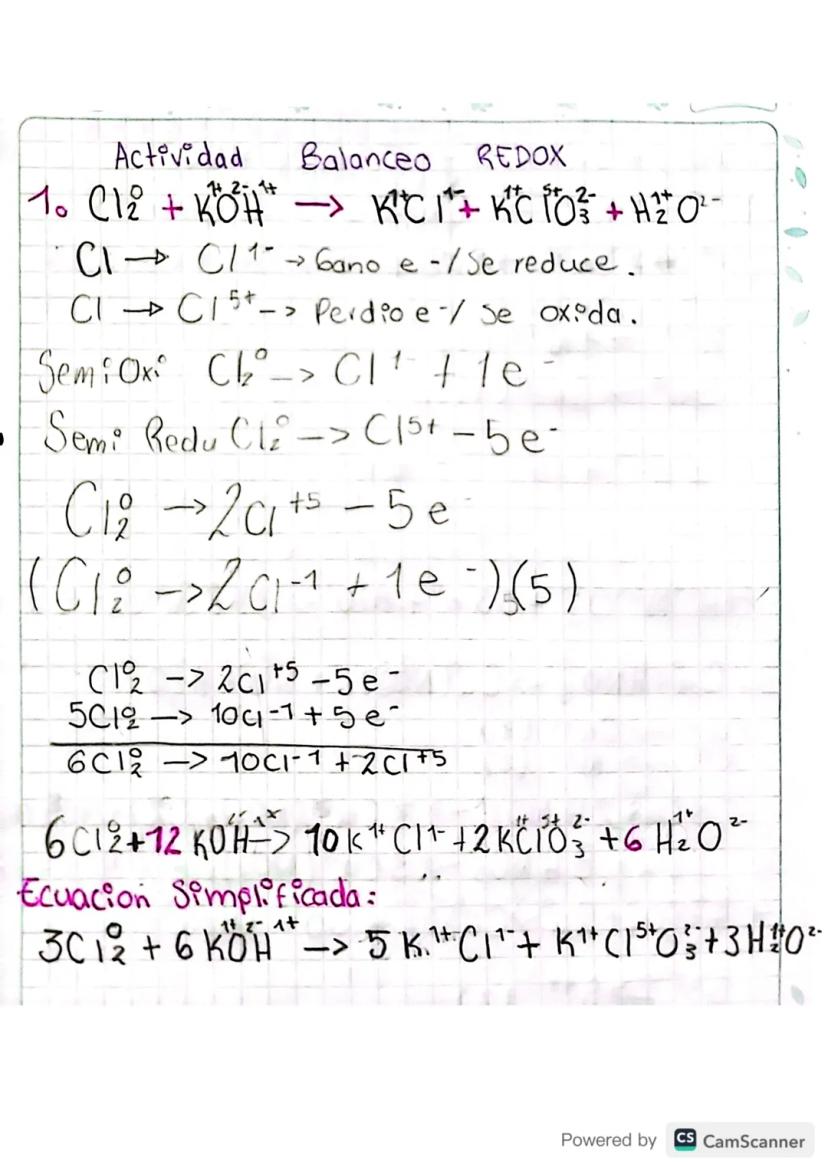 Actividad Balanceo REDOX
1. Cl₂⁰ + K¹⁺O²⁻H¹⁺ → K¹⁺Cl¹⁻ + K¹⁺Cl⁵⁺O₃²⁻ + H₂¹⁺O²⁻
Cl → Cl¹⁻ → Gano e-/Se reduce.
Cl → Cl⁵⁺ -> Perdio e-/ Se oxida.
Semi Oxi Cl₂⁰ -> Cl¹ + 1e⁻
Semi Redu Cl₂⁰ -> Cl⁵⁺ - 5e⁻
Cl₂⁰ -> 2Cl⁺⁵ - 5e
(Cl₂⁰ -> 2Cl⁻¹ + 1e⁻)(5)
Cl₂⁰ -> 2Cl⁺⁵ - 5e⁻
5Cl₂⁰ -> 10Cl⁻¹ + 5e⁻
6Cl₂⁰ -> 10Cl⁻¹ + 2Cl⁺⁵
6Cl₂⁰ + 12 KOH -> 10K¹⁺Cl¹⁻ + 2K¹⁺Cl⁵⁺O₃²⁻ + 6H₂¹⁺O²⁻
Ecuacion Simplificada:
3Cl₂⁰ + 6K¹⁺O²⁻H¹⁺ -> 5K¹⁺Cl¹⁻ + K¹⁺Cl⁵⁺O₃²⁻ + 3H₂¹⁺O²⁻
Powered by CS CamScanner